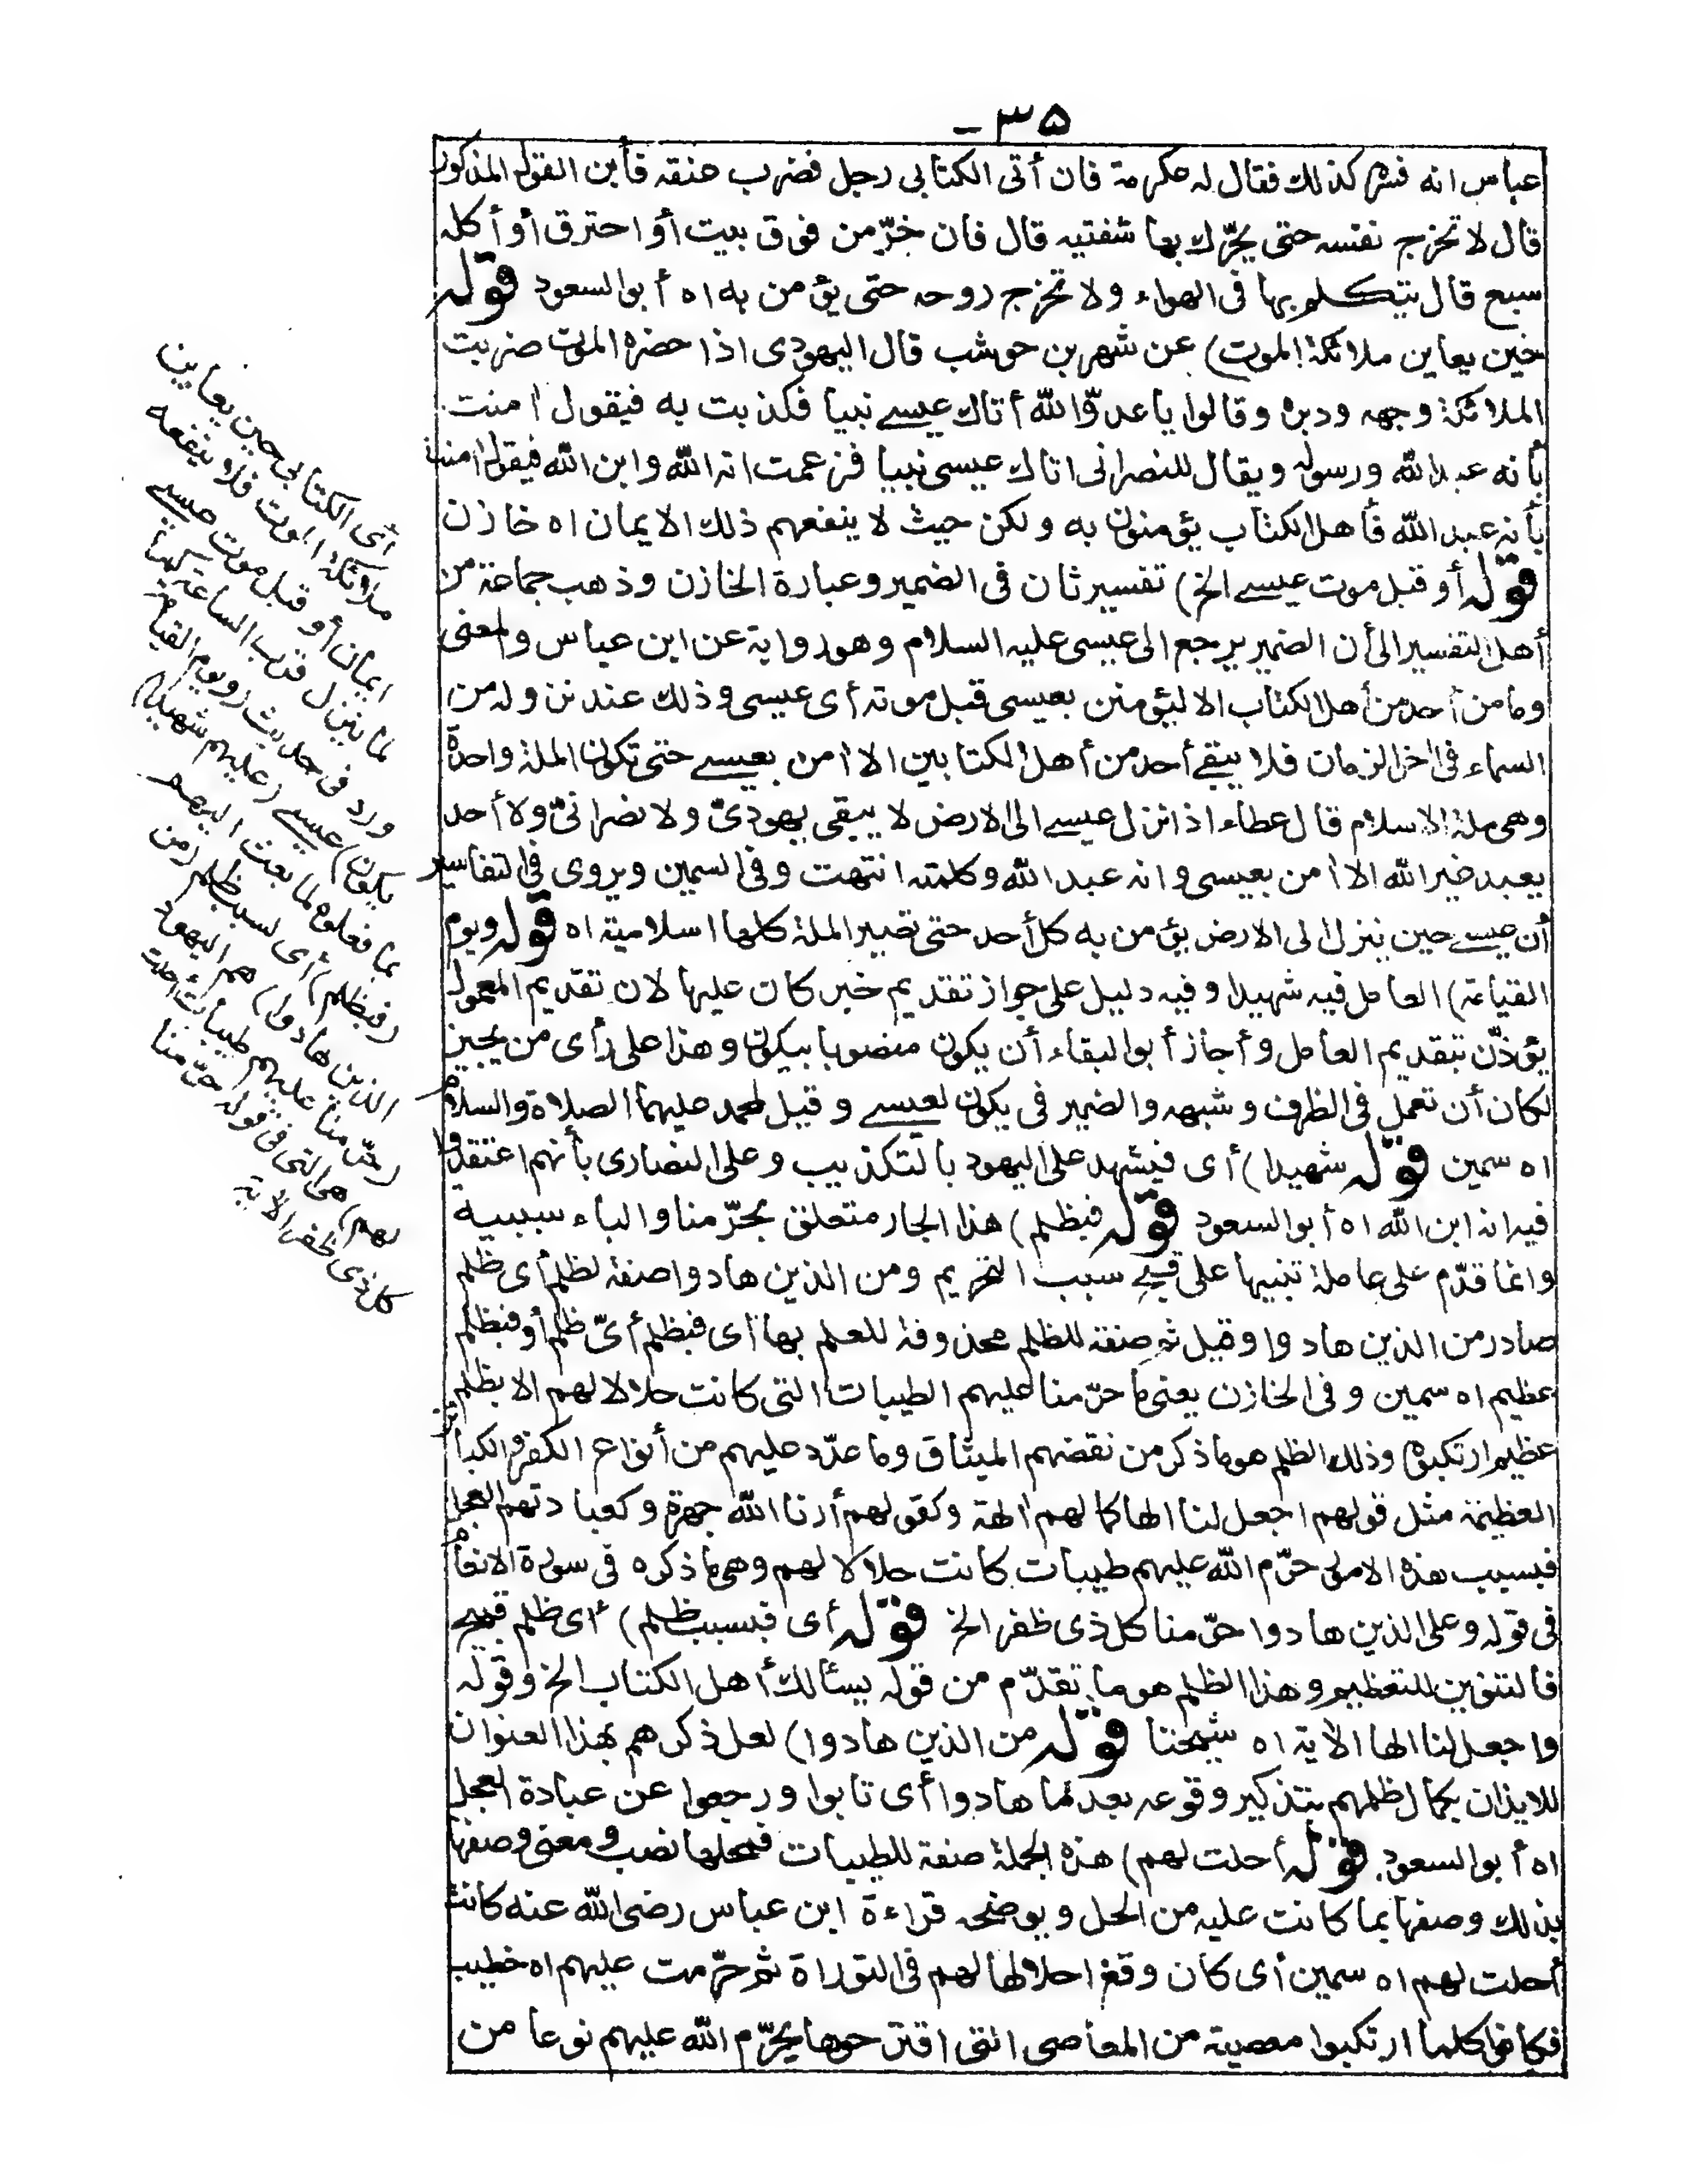 ٣٥ -
عباس انه فسره كذلك فقال له عكرمة فان أتى الكتابى رجل فضرب عنقه فأين القول المذكور
قال لا تخرج نفسه حتى يحرّك بها شفتيه قال فان خرّ من فوق بيت أو احترق أو أكله
سبع قال يتكلم بها فى الهواء ولا تخرج روحه حتى يؤمن به اه أبو السعود قوله
حين يعاين ملائكة الموت) عن شهر بن حوشب قال اليهودى اذا حضره الموت ضربت
الملائكة وجهه ودبره وقالوا يا عدوّ الله أتاك عيسے نبيا فكذبت به فيقول اٰمنت
بأنه عبد الله ورسوله ويقال للنصرانى اتاك عيسى نبيا فزعمت انه الله وابن الله فيقول اٰمنت
بأنه عبد الله فأهل الكتاب يؤمنون به ولكن حيث لا ينفعهم ذلك الايمان اه خازن
قوله أو قبل موت عيسے الخ) تفسير ثان فى الضمير وعبارة الخازن وذهب جماعة من
أهل التفسير الى أن الضمير يرجع الى عيسى عليه السلام وهو رواية عن ابن عباس والمعنى
وما من أحد من أهل الكتاب الا ليؤمنن بعيسى قبل موته أى عيسى وذلك عند نزوله من
السماء فى اٰخر الزمان فلا يبقے أحد من أهل الكتابين الا اٰمن بعيسے حتى تكون الملة واحدة
وهى ملة الاسلام قال عطاء اذا نزل عيسے الى الارض لا يبقى يهودىّ ولا نصرانىّ ولا أحد
يعبد غير الله الا اٰمن بعيسى وانه عبد الله وكلمته انتهت وفى السمين ويروى فى التفاسير
أن عيسے حين ينزل الى الارض يؤمن به كل أحد حتى تصير الملة كلها اسلامية اه قوله ويوم
القيامة) العامل فيه شهيدا وفيه دليل على جواز تقديم خبر كان عليها لان تقديم المعمول
يؤذن بتقديم العامل وأجاز أبو البقاء أن يكون منصوبا بيكون وهذا على رأى من يجيز
لكان أن تعمل فى الظرف وشبهه والضمير فى يكون لعيسے وقيل لمحمد عليهما الصلاة والسلام
اه سمين قوله شهيدا) أى فيشهد على اليهود بالتكذيب وعلى النصارى بأنهم اعتقدوا
فيه انه ابن الله اه أبو السعود قوله فبظلم) هذا الجار متعلق بحرّمنا والباء سببية
وانما قدّم على عامله تنبيها على قبح سبب التحريم ومن الذين هادوا صفة لظلم أى ظلم
صادر من الذين هادوا وقيل ثم صفة للظلم محذوفة للعلم بها أى فبظلم أىّ ظلم أو فبظلم
عظيم اه سمين وفى الخازن يعنى ما حرّمنا عليهم الطيبات التى كانت حلالا لهم الا بظلم
عظيم ارتكبوه وذلك الظلم هو ما ذكر من نقضهم الميثاق وما عدّد عليهم من أنواع الكفر والكبائر
العظيمة مثل قولهم اجعل لنا الها كما لهم اٰلهة وكقولهم أرنا الله جهرة وكعبادتهم العجل
فبسبب هذه الامور حرّم الله عليهم طيبات كانت حلالا لهم وهى ما ذكره فى سورة الانعام
فى قوله وعلى الذين هادوا حرّمنا كل ذى ظفر الخ قوله أى فبسبب ظلم) أى ظلم قبيح
فالتنوين للتعظيم وهذا الظلم هو ما تقدّم من قوله يسألك أهل الكتاب الخ وقوله
واجعل لنا الها الاٰية اه شيخنا قوله من الذين هادوا) لعل ذكرهم بهذا العنوان
للايذان بكمال ظلمهم بتذكير وقوعه بعد ما هادوا أى تابوا ورجعوا عن عبادة العجل
اه أبو السعود قوله أحلت لهم) هذه الجملة صفة للطيبات فمحلها نصب ومعنى وصفها
بذلك وصفها بما كانت عليه من الحل ويوضحه قراءة ابن عباس رضى الله عنه كانت
أحلت لهم اه سمين أى كان وقع احلالها لهم فى التوراة ثم حرّمت عليهم اه خطيب
فكانوا كلما ارتكبوا معصية من المعاصى التى اقترحوها يحرّم الله عليهم نوعا من
أى الكتابى حين يعاين
ملائكة الموت فلا ينفعه
ايمان أو قبل موت عيسے
لما ينزل قرب الساعة كما
ورد فى حديث (ويوم القيامة
يكون) عيسے (عليهم شهيدا)
بما فعلوه لما بعث اليهم
(فبظلم) أى لسبب ظلم (من
الذين هادوا) هم اليهود
(حرّمنا عليهم طيبات أحلت
لهم) هى التى فى قوله حرّمنا
كل ذى ظفر الاٰية